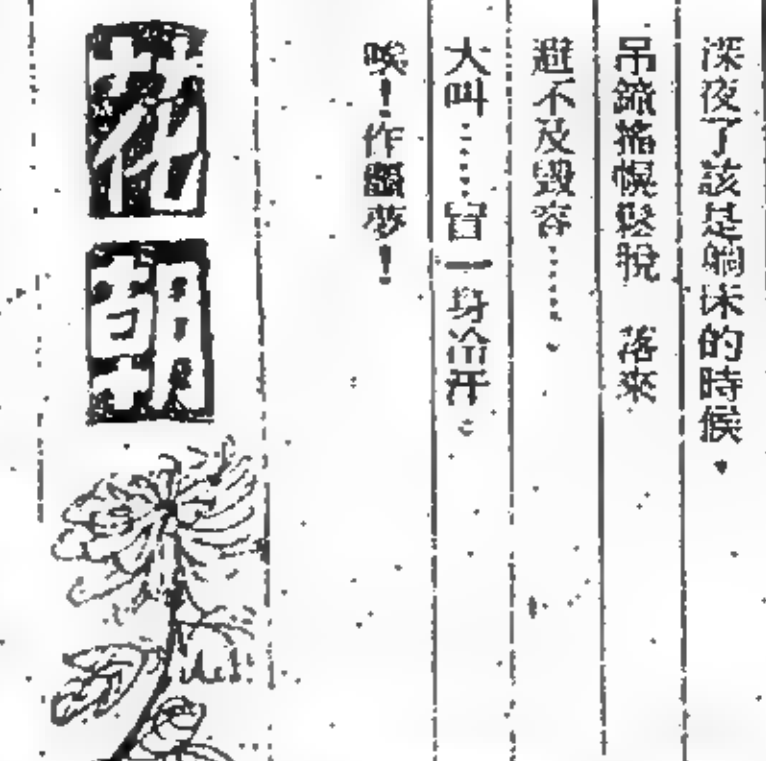 深夜了該是躺床的時候，
吊鏡搖幌鬆脫　落來
避不及毀容……，
大叫……冒一身冷汗：
唉！作噩夢！
花
胡